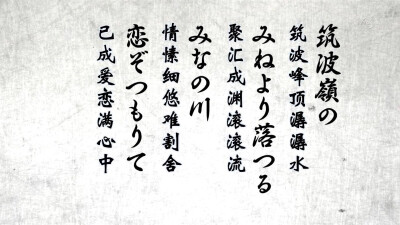 筑波嶺の
筑波峰顶潺潺水
みねより落つる
聚汇成渊滚滚流
みなの川
情愫细悠难割舍
恋ぞつもりて
已成爱恋满心中